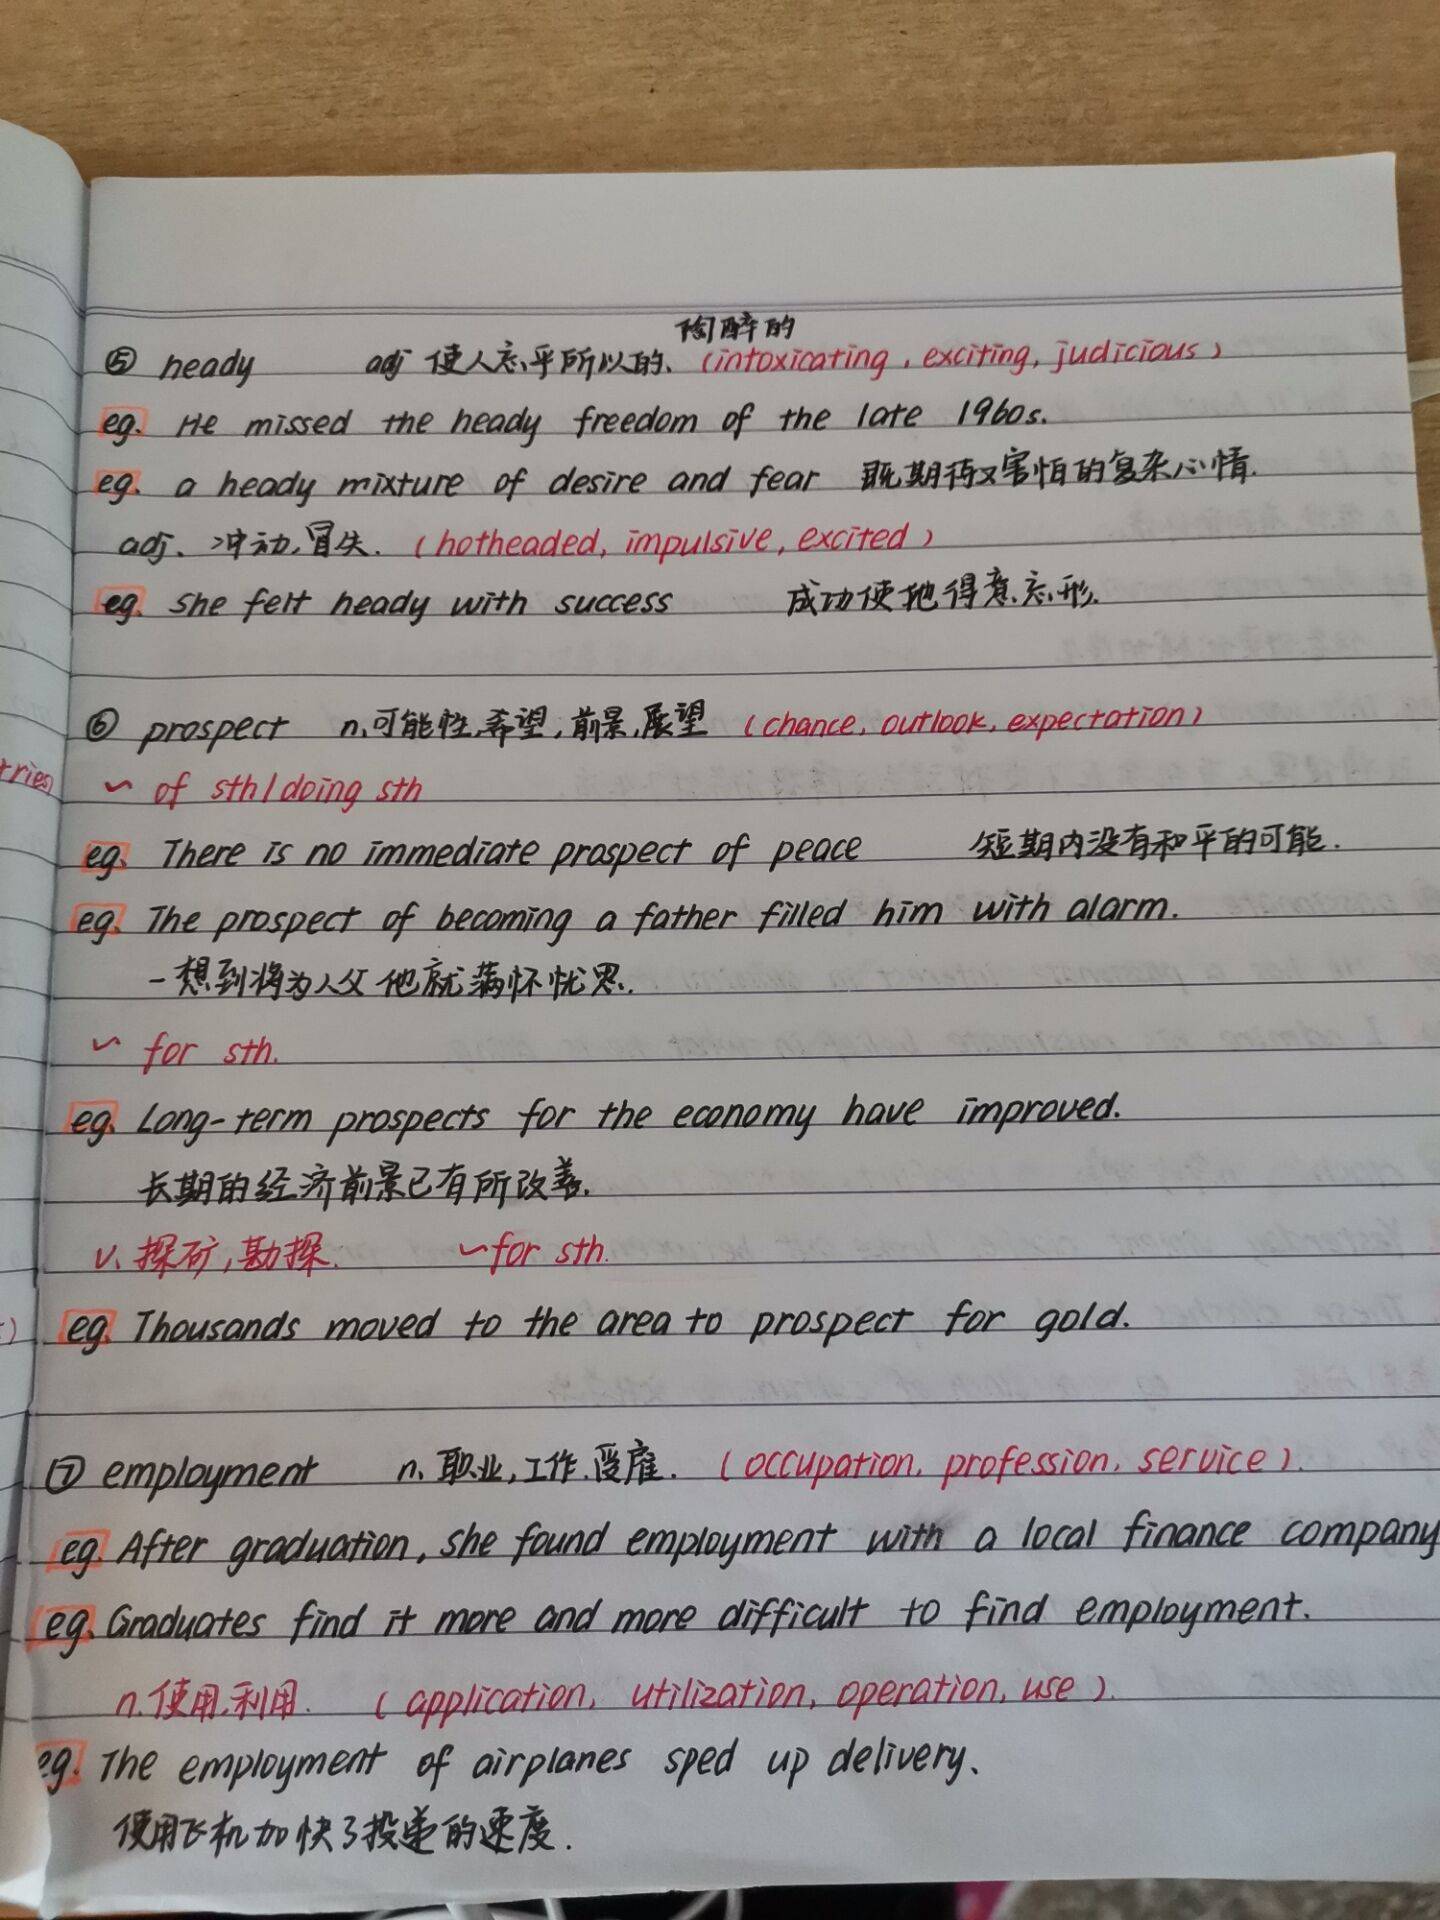 陶醉的
⑤ heady adj 使人忘乎所以的、(intoxicating, exciting, judicious)
eg. He missed the heady freedom of the late 1960s.
eg. a heady mixture of desire and fear 既期待又害怕的复杂心情.
adj. 冲动,冒失. (hotheaded, impulsive, excited)
eg. She felt heady with success 成功使她得意忘形.
⑥ prospect n.可能性,希望,前景,展望 (chance, outlook, expectation)
~ of sth/doing sth
tries)
eg. There is no immediate prospect of peace 短期内没有和平的可能.
eg. The prospect of becoming a father filled him with alarm.
一想到将为人父他就满怀忧思.
~ for sth.
eg. Long-term prospects for the economy have improved.
长期的经济前景已有所改善.
v. 探矿,勘探. ~for sth.
eg. Thousands moved to the area to prospect for gold.
⑦ employment n. 职业,工作,受雇. (occupation, profession, service).
eg. After graduation, she found employment with a local finance company
eg. Graduates find it more and more difficult to find employment.
n.使用,利用. (application, utilization, operation, use).
eg. The employment of airplanes sped up delivery.
使用飞机加快了投递的速度.